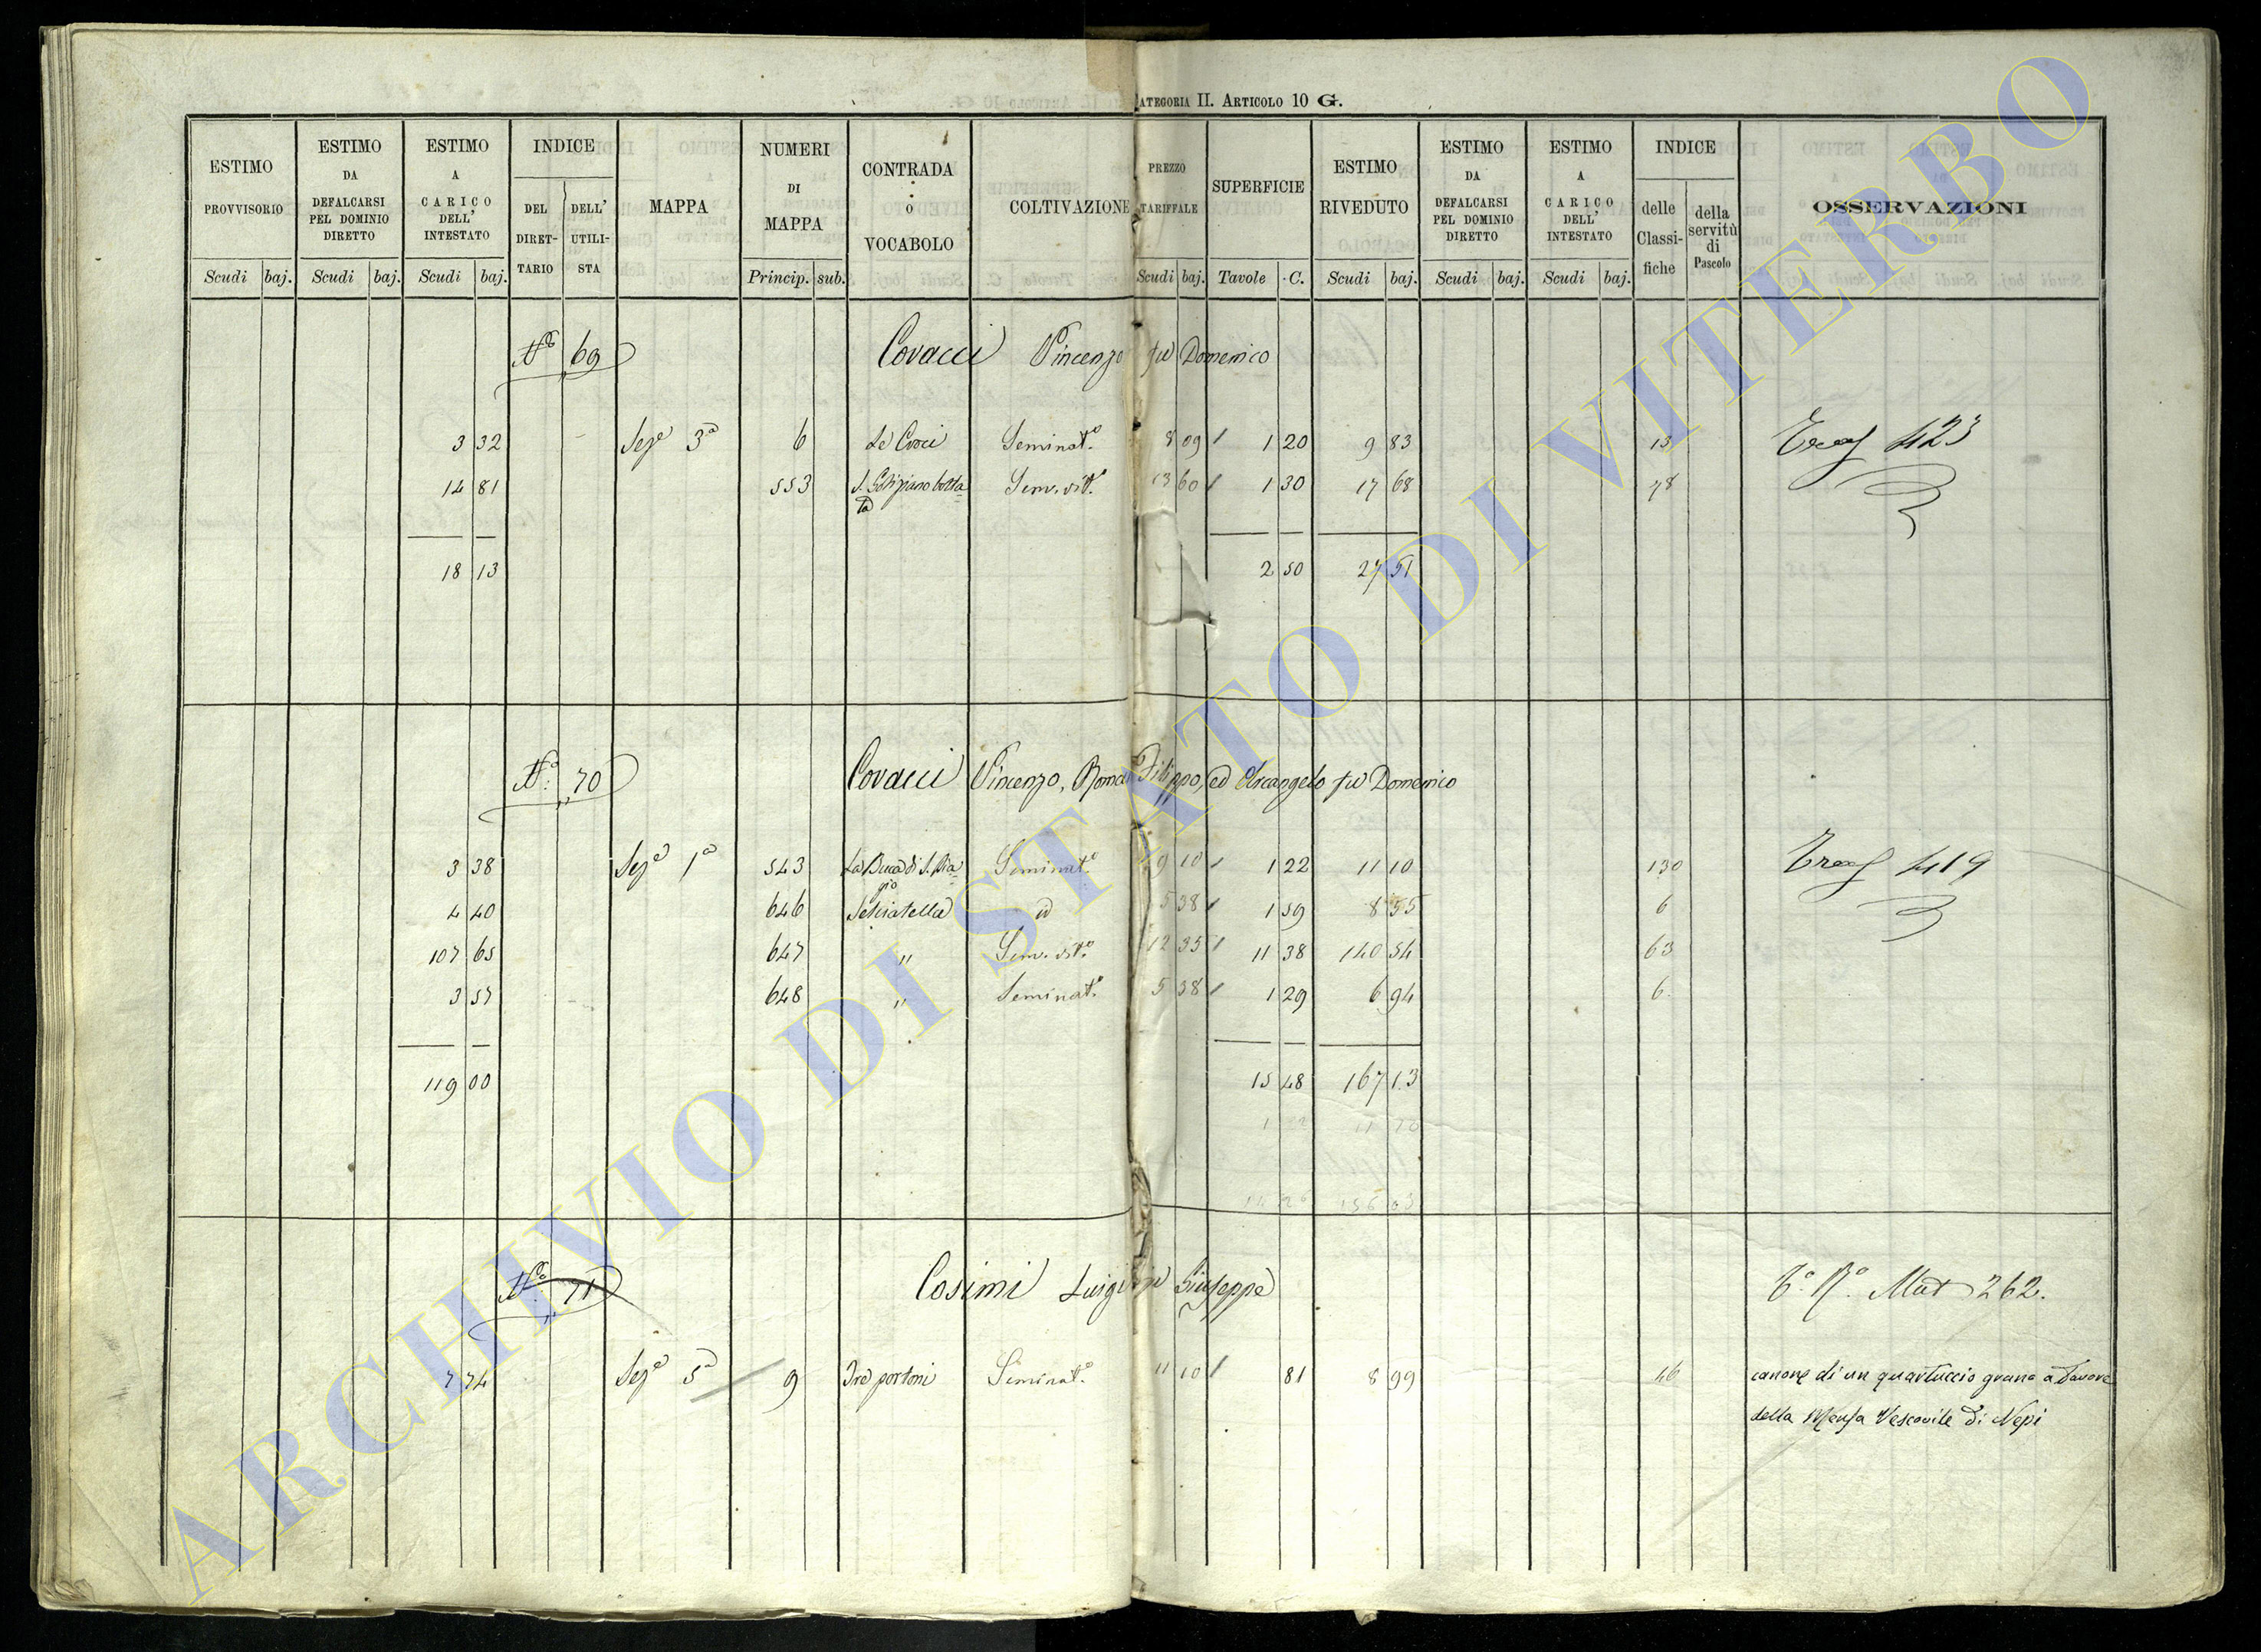 CATEGORIA II. ARTICOLO 10 G.
ESTIMO PROVVISORIO Scudi baj.
ESTIMO DA DEFALCARSI PEL DOMINIO DIRETTO Scudi baj.
ESTIMO A CARICO DELL' INTESTATO Scudi baj.
INDICE DEL DIRET- TARIO DELL' UTILI- STA
MAPPA
NUMERI DI MAPPA Princip. sub.
CONTRADA O VOCABOLO
COLTIVAZIONE
PREZZO TARIFFALE Scudi baj.
SUPERFICIE Tavole C.
ESTIMO RIVEDUTO Scudi baj.
ESTIMO DA DEFALCARSI PEL DOMINIO DIRETTO Scudi baj.
ESTIMO A CARICO DELL' INTESTATO Scudi baj.
INDICE delle Classi- fiche della servitù di Pascolo
OSSERVAZIONI
No 69 Covacci Vincenzo fu Domenico
3 32 Seze 3a 6 Le Croci Seminat.o 8 09 1 20 9 83 13 423
14 81 553 Sem. vit.o 13 60 1 30 17 68 78
18 13 2 50 27 51
No. 70 Covacci Vincenzo, Filippo, ed Arcangelo fu Domenico
3 38 Seze 1a 543 La Buca di S. Bia= Seminat.o 9 10 1 22 11 10 130 419
gio
4 40 646 Selciatella id 5 38 1 59 8 55 6
107 65 647 " Sem. vit.o 12 35 11 38 140 54 63
3 57 648 " Seminat.o 5 38 1 29 6 94 6
119 00 15 48 167 13
No. 71 Cosimi Luigi fu Giuseppe 262.
7 74 Seze 5a 9 Tre portoni Seminat.o 11 10 81 8 99 46 canone di un quartuccio grano a favore
della Mensa Vescovile di Nepi
ARCHIVIO DI STATO DI VITERBO